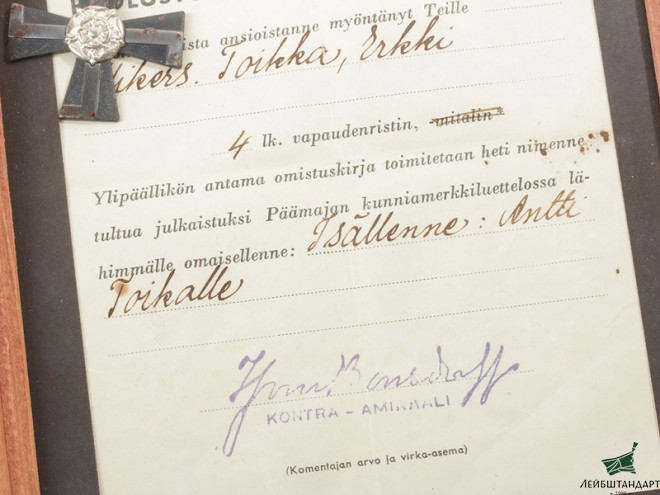 ista ansioistanne myöntänyt Teille
Toikka, Erkki
4 lk. vapaudenristin, mitalin*
Ylipäällikön antama omistuskirja toimitetaan heti nimenne
tultua julkaistuksi Päämajan kunniamerkkiluettelossa lä-
himmälle omaisellenne: Isällenne: Antti
Toikalle
KONTRA-AMIRAALI
(Komentajan arvo ja virka-asema)
ЛЕЙБШТАНДАРТ